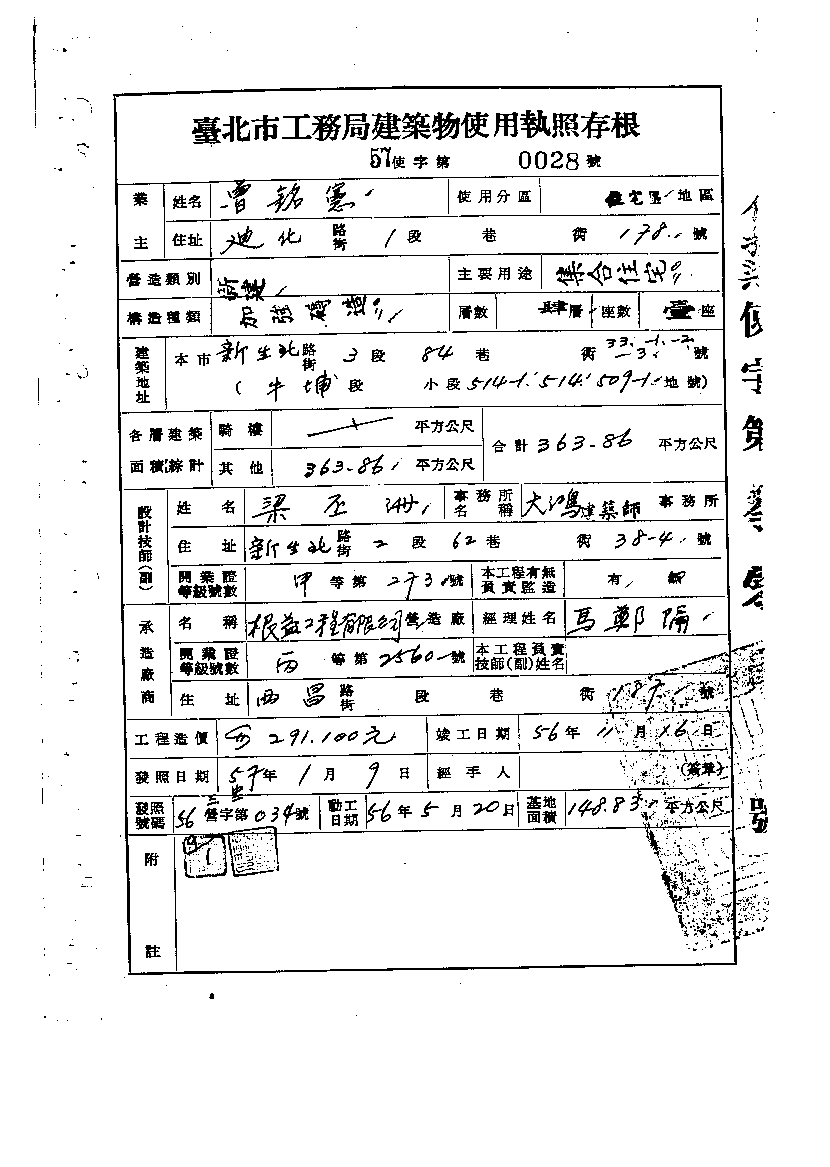 臺北市工務局建築物使用執照存根
57使字第 0028 號
業主 姓名 曾銘憲 使用分區 住宅區 地區
住址 迪化路街 1段 巷 街 178 號
營造類別 新建 主要用途 集合住宅
構造種類 加強磚造 層數 肆層 座數 壹座
建築地址 本市 新生北路街 3段 84巷 街 33.-1.-2. -3. 號
(牛埔段 小段 514-1. 514. 509-1. 地號)
各層建築面積綜計 騎樓 平方公尺 合計 363.86 平方公尺
其他 363.86 平方公尺
設計技師(副) 姓名 梁丕洲 事務所名稱 大鴻建築師 事務所
住址 新生北路街 2段 62巷 街 38-4 號
開業證等級號數 甲等第 273 號 本工程有無負責監造 有
承造廠商 名稱 根益工程有限公司 營造廠 經理姓名 馬鄭
開業證等級號數 丙等第 2560 號 本工程負責技師(副)姓名
住址 西昌路街 段 巷 街 187 號
工程造價 291.100元 竣工日期 56年 11月 16日
發照日期 57年 1月 9日 經手人 (簽章)
發照號碼 56 營字第 034 號 動工日期 56年 5月 20日 基地面積 148.83 平方公尺
附註
1
使字第
號